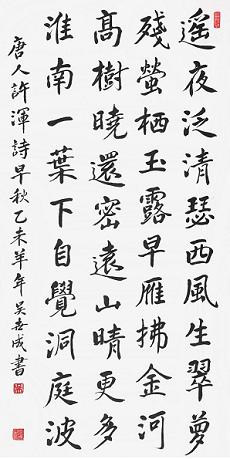 遙夜泛清瑟西風生翠夢
殘螢栖玉露早雁拂金河
髙樹曉還密遠山晴更多
淮南一葉下自覺洞庭波
唐人許渾詩早秋乙未羊年吴成書